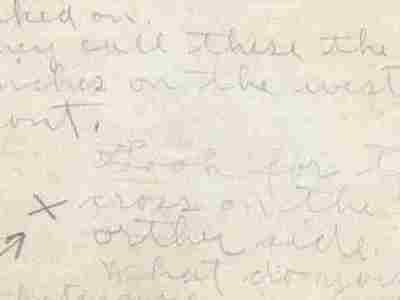 ked on.
ey call these the
ches on the west
ont.
Look for t
x cross on the
orther side.
What do you